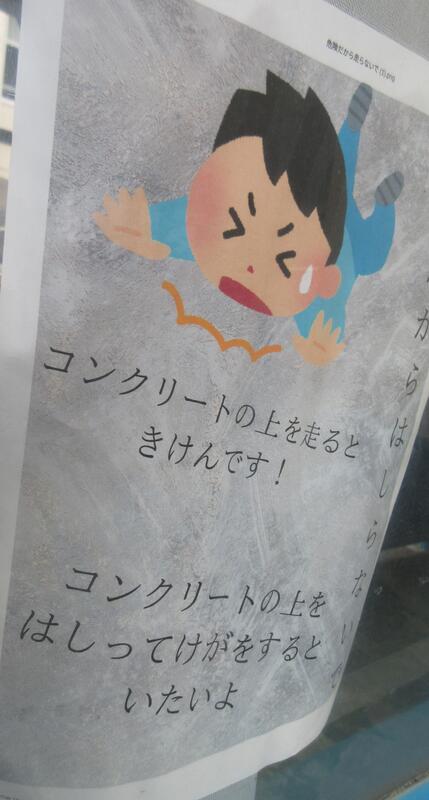 危険だから走らないで (1).png
コンクリートの上を走ると
きけんです！
コンクリートの上を
はしってけがをすると
いたいよ
からはしらないで